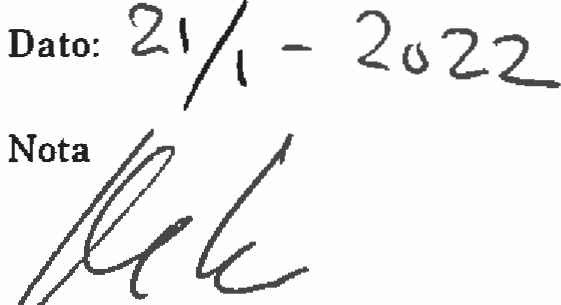 Dato: 21/1 - 2022
Nota